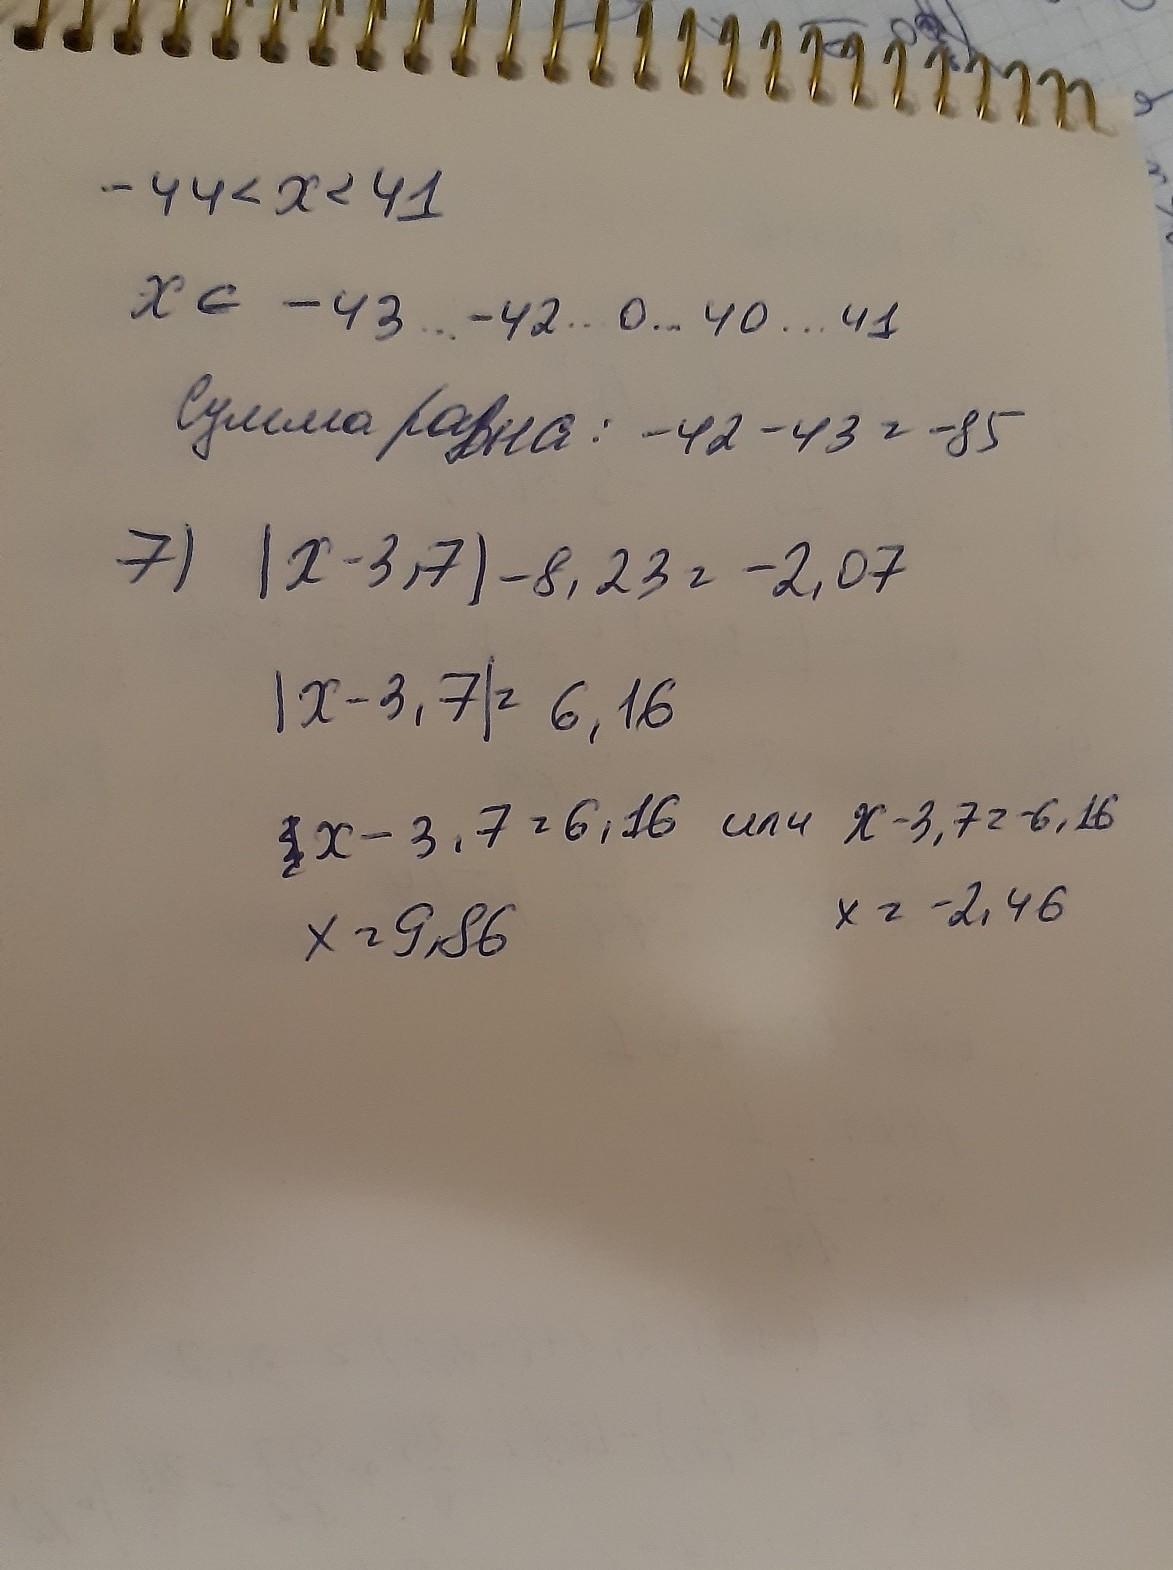 -44<x<41
x ∈ -43...-42...0...40...41
Сумма равна: -42-43=-85
7) |x-3,7|-8,23=-2,07
|x-3,7|=6,16
x-3,7=6,16 или x-3,7=-6,16
x=9,86 x=-2,46